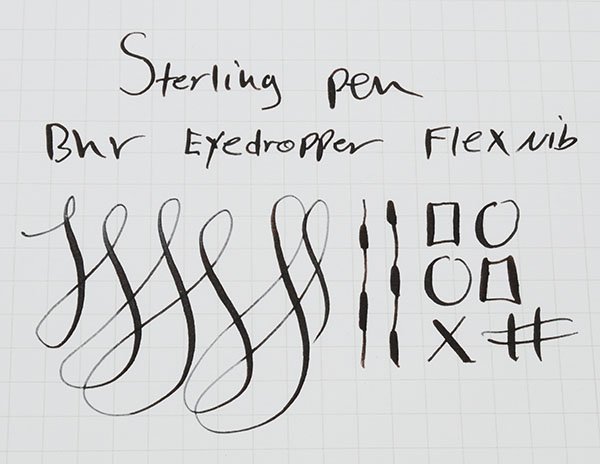 Sterling pen
Bhr Eyedropper Flex nib